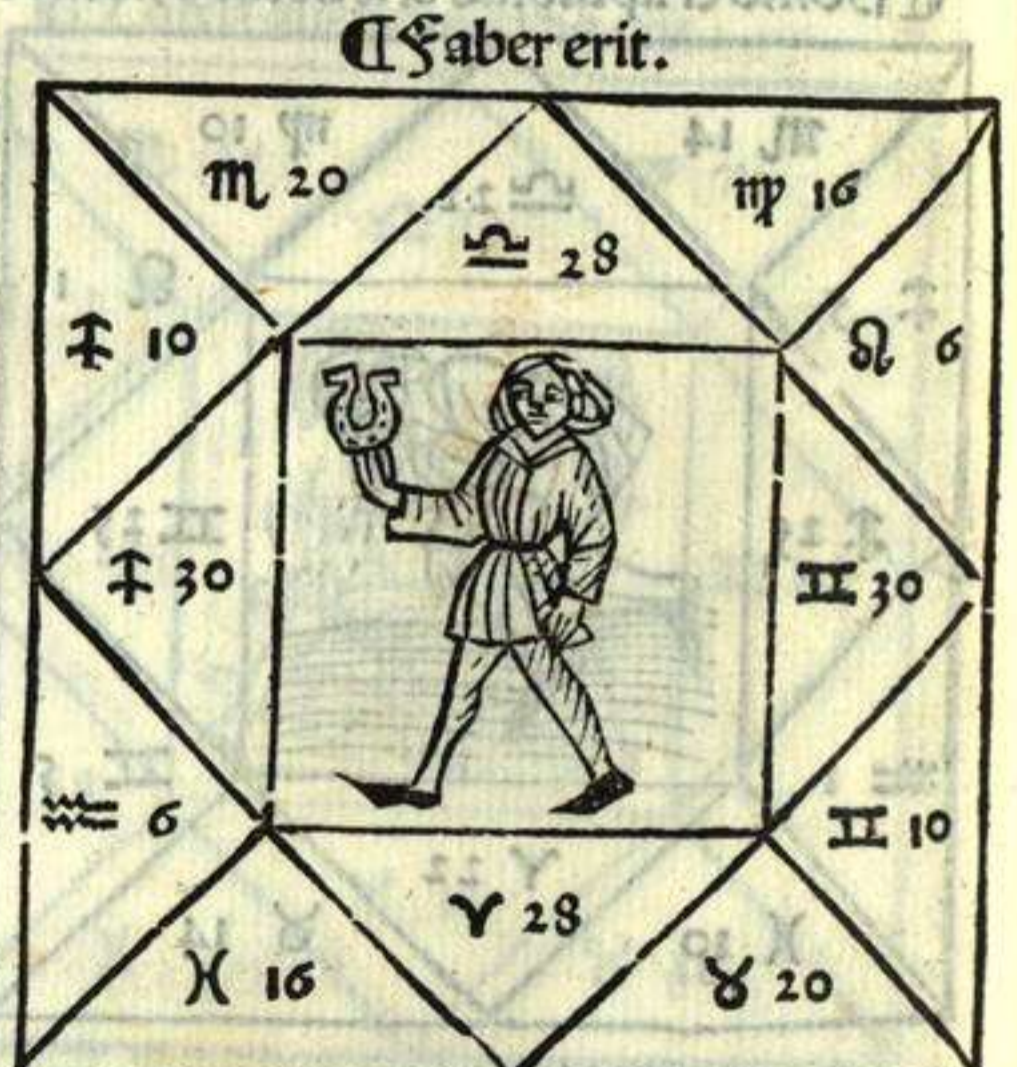 ¶ Faber erit.
♏ 20
♎ 28
♍ 16
♐ 10
♌ 6
♐ 30
♊ 30
♒ 6
♊ 10
♈ 28
♓ 16
♉ 20